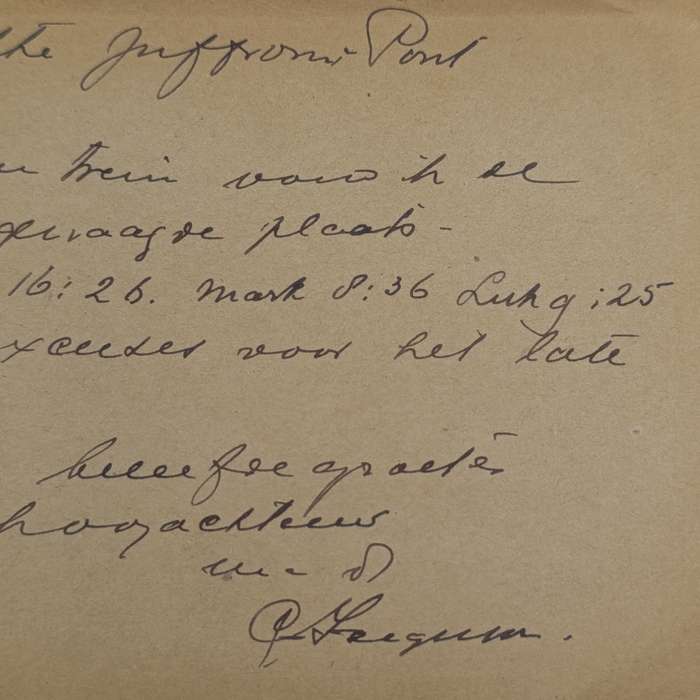 the Juffrouw Pont
trein vond ik de
gevraagde plaats -
16:26. Mark 8:36 Luk 9:25
xcuses voor het late
beleefde groeten
hoogachtend